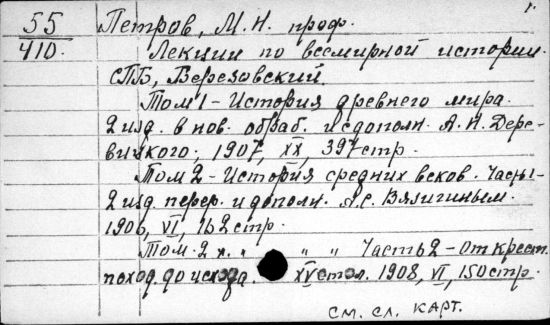 55
410.
Петров, М. Н. проф.
Лекции по всемирной истории.
СПБ, Березовский.
Том 1 - История древнего мира.
2 изд. в нов. обраб. и с дополн. А. Н. Дере-
вицкого; 1907, XX, 397 стр.
Том 2 - История средних веков. Часть 1 -
2 изд. перер. и дополн. А. С. Вязигиным.
1906, VI, 162 стр.
Том 2 " " " Часть 2 - От крест.
поход. до исхода XV стол. 1908, VI, 150 стр.
см. сл. карт.